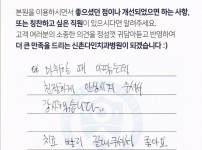 본원을 이용하시면서 좋으셨던 점이나 개선되었으면 하는 사항,
또는 칭찬하고 싶은 직원이 있으시다면 알려주세요.
고객 여러분의 소중한 의견을 정성껏 귀담아듣고 반영하여
더 큰 만족을 드리는 신촌다인치과병원이 되겠습니다 :)
친절하게
감사합니다
치료 빨리 끝내주셔서 좋아요